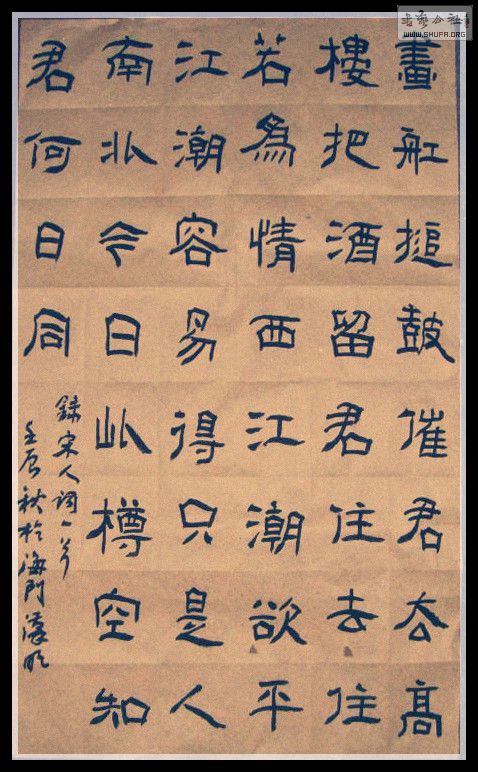 畫舡搥鼓催君去高
樓把酒留君住去住
若為情西江潮欲平
江潮容易得只是人
南北今日此樽空知
君何日同
錄宋人詞一首
壬辰秋於海門
书艺公社
WWW.SHUFA.ORG